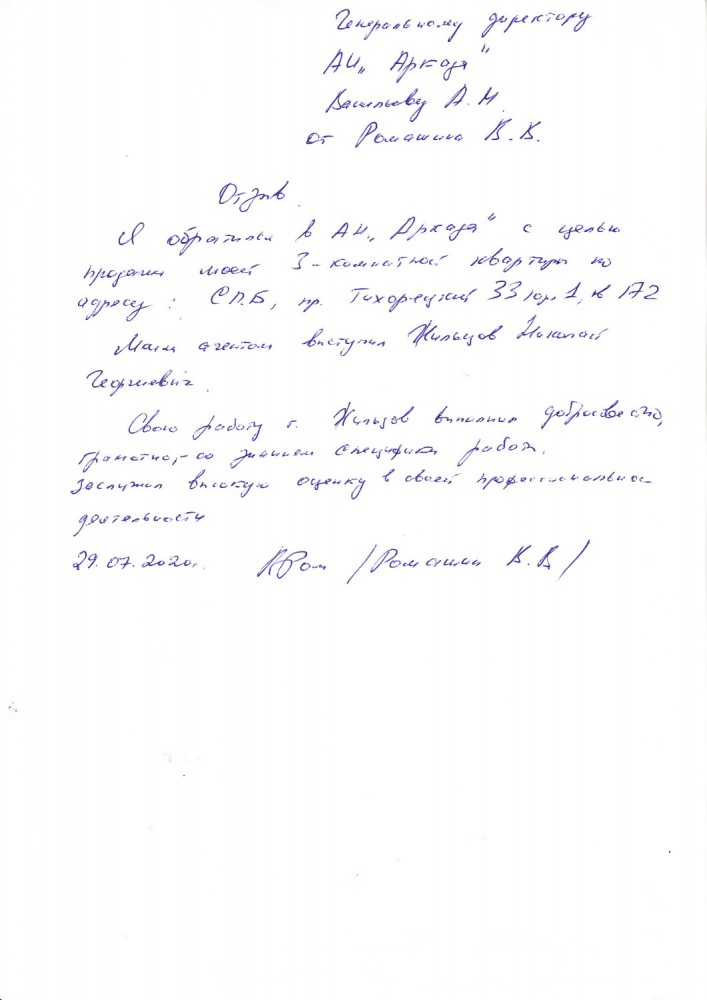 Генеральному директору
АН „Аркада"
Васильеву А.Н.
от Ромашина В.В.
Отзыв.
Я обратился в АН „Аркада" с целью
продажи моей 3-комнатной квартиры по
адресу: СПБ, пр. Тихорецкий 33 кор. 1, кв 172
Моим агентом выступил Жильцов Николай
Георгиевич.
Свою работу г. Жильцов выполнил добросовестно,
грамотно, со знанием специфики работы.
Заслужил высокую оценку в своей профессиональной
деятельности
29.07.2020г. /Ромашин В.В/